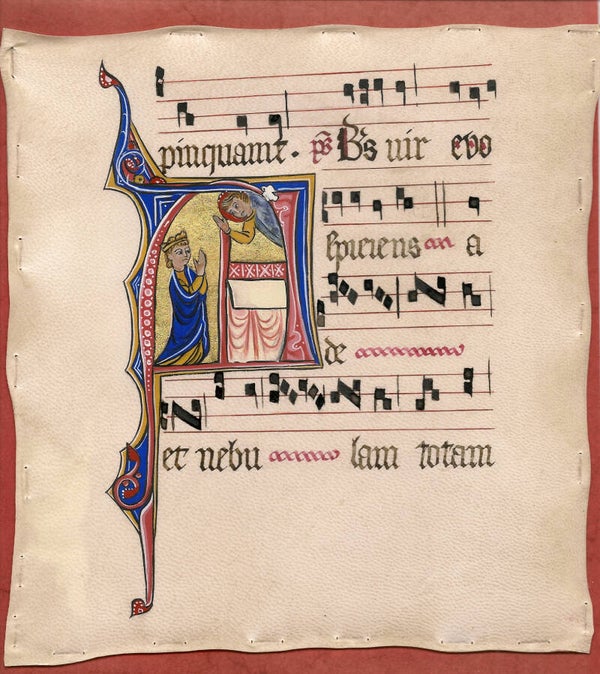 pinquauit · ps Bs uir evo
Aspiciens a
de
et nebu lam totam